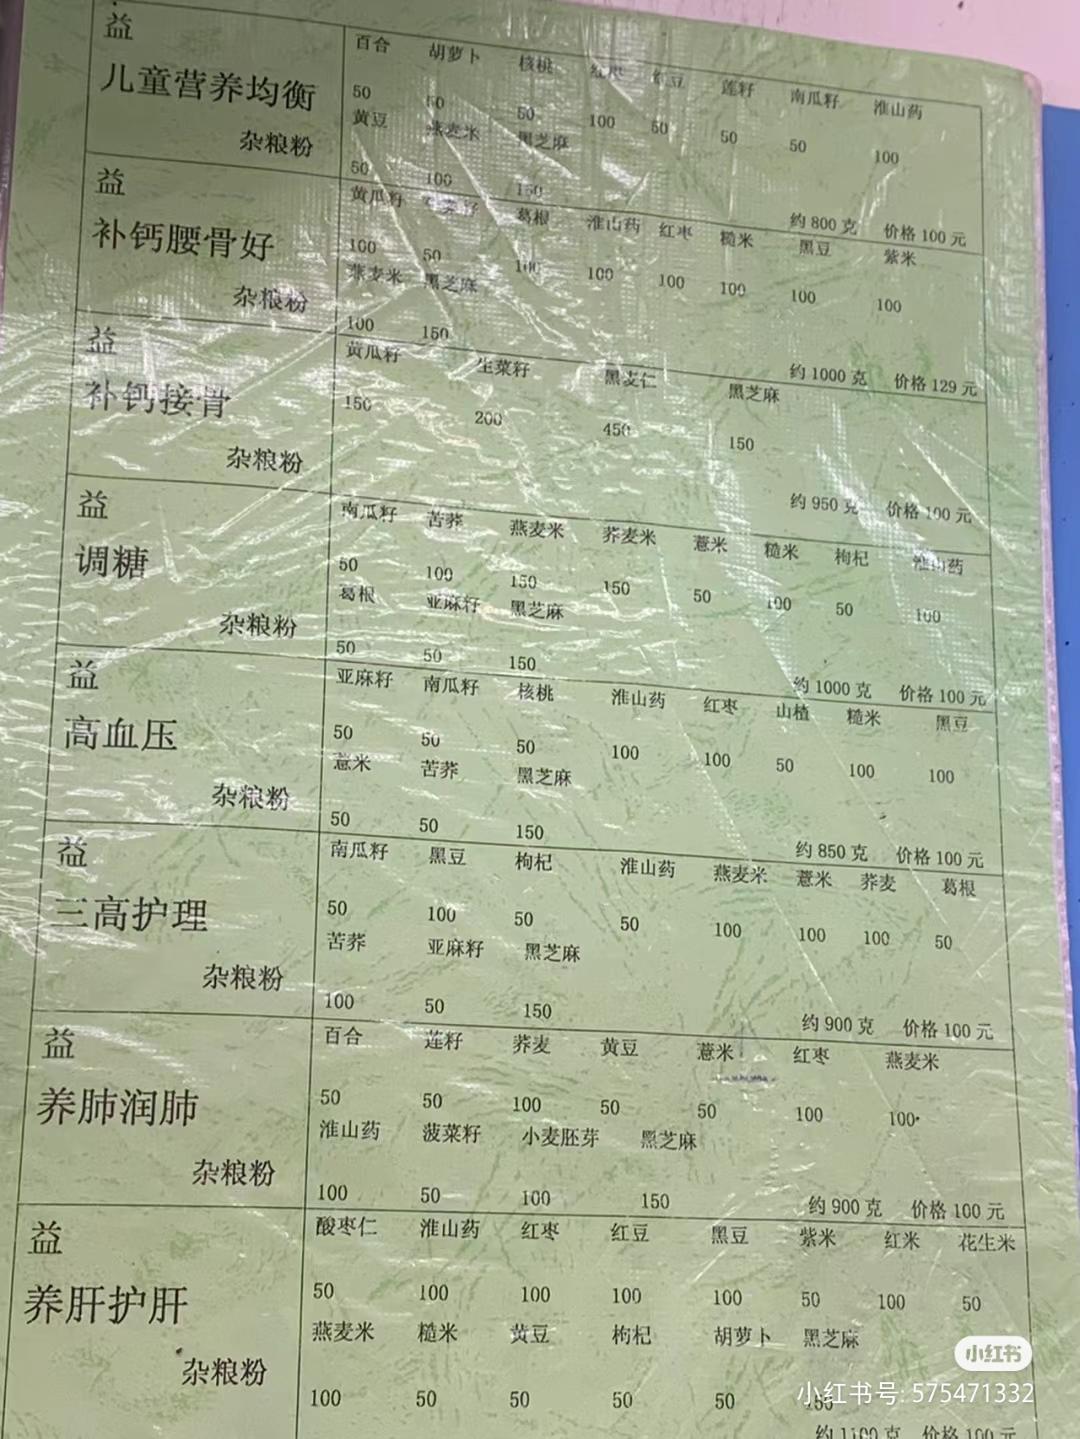 益
儿童营养均衡
杂粮粉
百合 胡萝卜 核桃 红枣 红豆 莲籽 南瓜籽 淮山药
50 50 50 100 50 50 50 100
黄豆 燕麦米 黑芝麻
50 100 150
约800克 价格100元
益
补钙腰骨好
杂粮粉
黄瓜籽 葛根 淮山药 红枣 糙米 黑豆 紫米
100 50 100 100 100 100 100 100
燕麦米 黑芝麻
100 150
约1000克 价格129元
益
补钙接骨
杂粮粉
黄瓜籽 生菜籽 黑麦仁 黑芝麻
150 200 450 150
约950克 价格100元
益
调糖
杂粮粉
南瓜籽 苦荞 燕麦米 荞麦米 薏米 糙米 枸杞 淮山药
50 100 150 150 50 100 50 100
葛根 亚麻籽 黑芝麻
50 50 150
约1000克 价格100元
益
高血压
杂粮粉
亚麻籽 南瓜籽 核桃 淮山药 红枣 山楂 糙米 黑豆
50 50 50 100 100 50 100 100
薏米 苦荞 黑芝麻
50 50 150
约850克 价格100元
益
三高护理
杂粮粉
南瓜籽 黑豆 枸杞 淮山药 燕麦米 薏米 荞麦 葛根
50 100 50 50 100 100 100 50
苦荞 亚麻籽 黑芝麻
100 50 150
约900克 价格100元
益
养肺润肺
杂粮粉
百合 莲籽 荞麦 黄豆 薏米 红枣 燕麦米
50 50 100 50 50 100 100
淮山药 菠菜籽 小麦胚芽 黑芝麻
100 50 100 150
约900克 价格100元
益
养肝护肝
杂粮粉
酸枣仁 淮山药 红枣 红豆 黑豆 紫米 红米 花生米
50 100 100 100 100 50 100 50
燕麦米 糙米 黄豆 枸杞 胡萝卜 黑芝麻
100 50 50 50 50 150
约1100克 价格100元
小红书
小红书号: 575471332